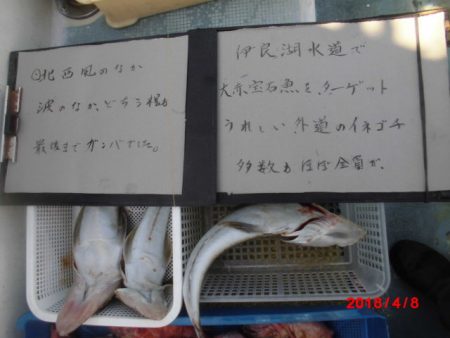 伊良湖水道で
大赤宝石魚を、ターゲット
うれしい外道のイネゴチ
多数もほぼ全員が、
北西風のなか
波のなか、どちら様も
最後までガンバでした。
2018/4/8